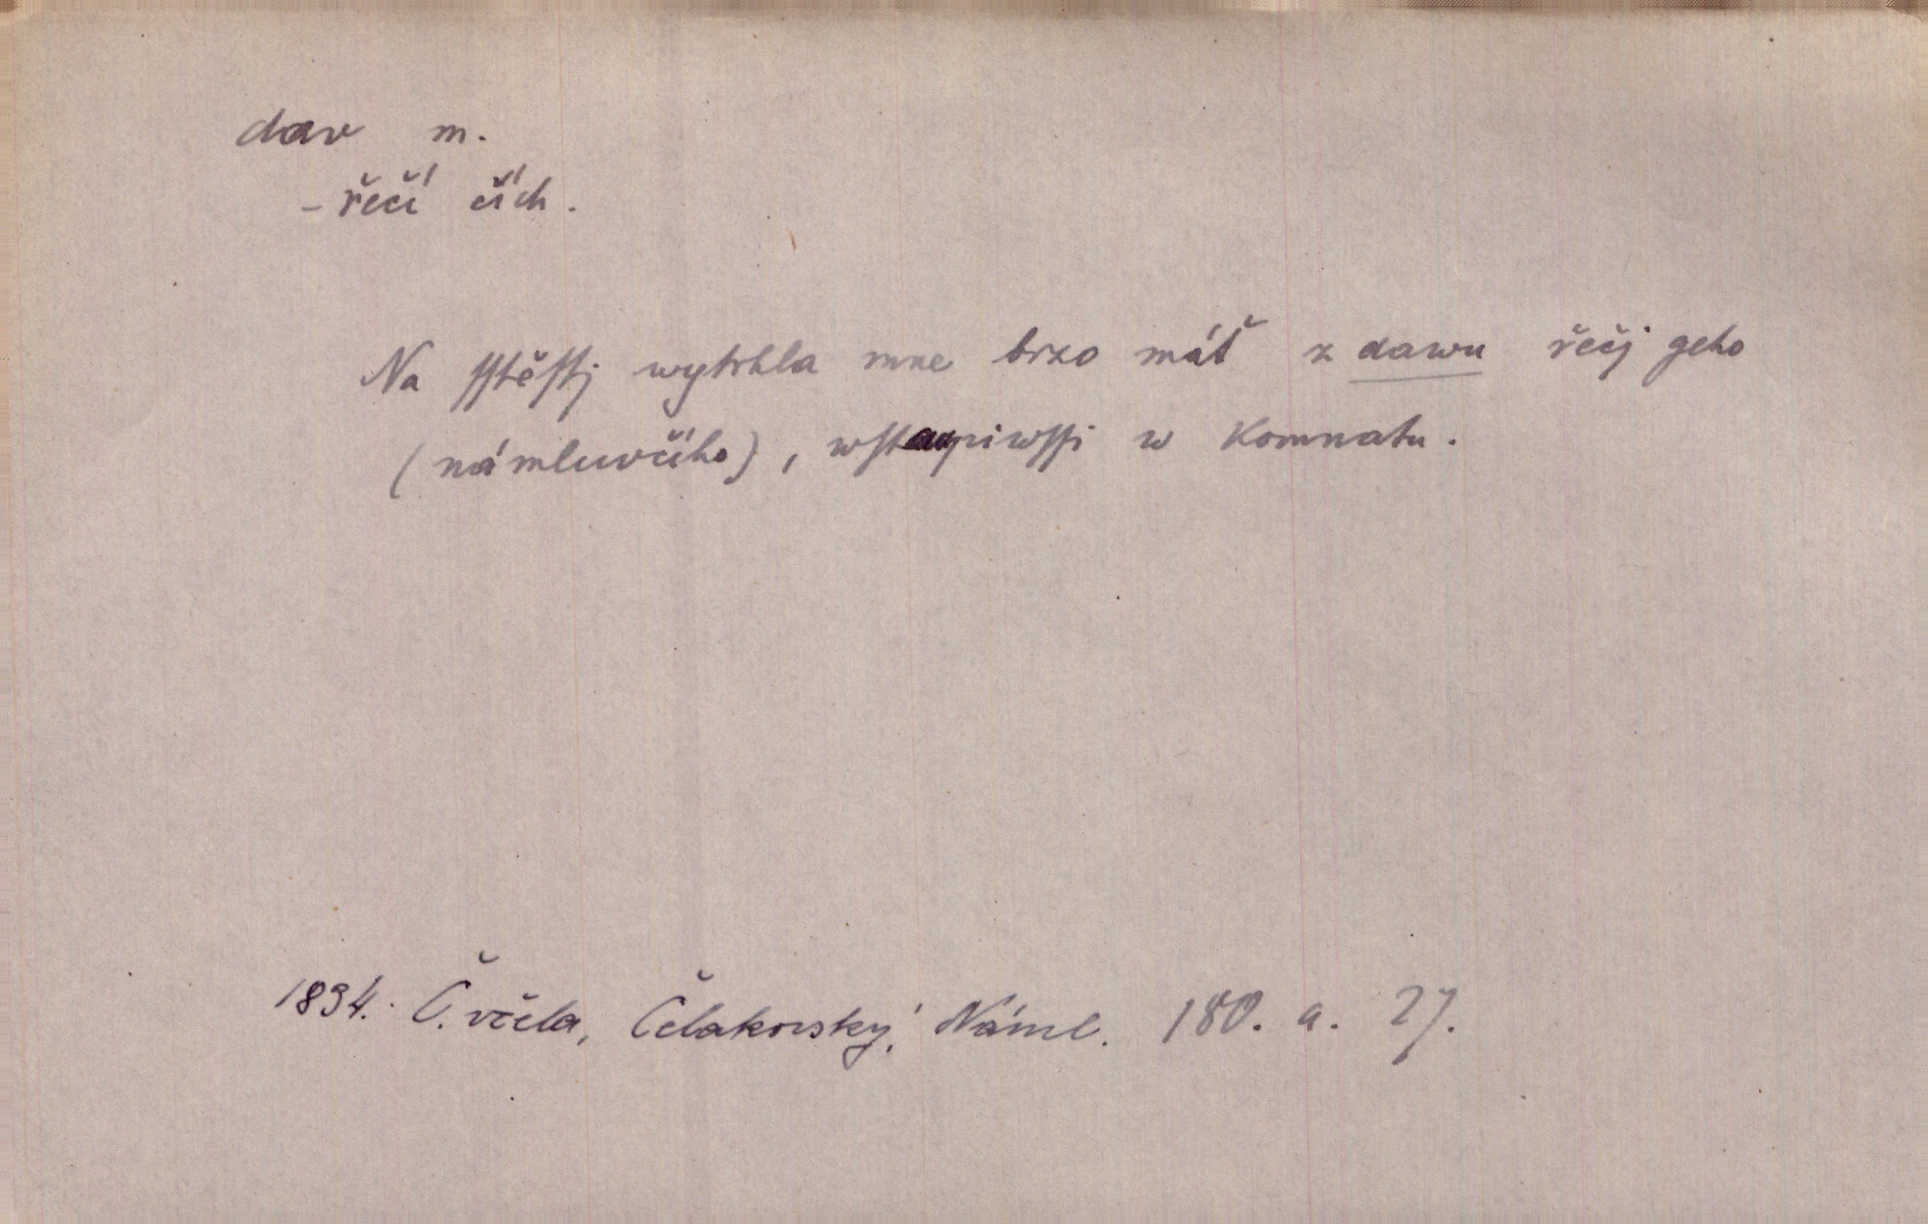 dav m.
- řečí čích.
Na sstěstj wytrhla mne brzo máť z dawu řečj geho
(námluvčího), wstaupiwssi w komnatu.
1834. Č. včela, Čelakovský: Náml. 180. a. 27.